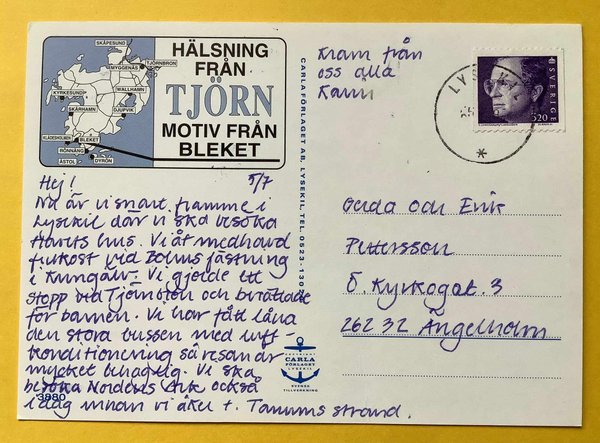 SKÅPESUND
MYGGENÄS
TJÖRNBRON
KYRKESUND
WALLHAMN
SKÄRHAMN
DJUPVIK
KLÄDESHOLMEN
BLEKET
RÖNNÄNG
ÅSTOL
DYRÖN
HÄLSNING
FRÅN
TJÖRN
MOTIV FRÅN
BLEKET
Hej! 5/7
Nu är vi snart framme i
Lysekil där vi ska besöka
Havets hus. Vi åt medhavd
frukost vid Bohus fästning
i Kungälv. Vi gjorde ett
stopp vid Tjörnbron och berättade
för barnen. Vi har fått låna
den stora bussen med luft-
konditionering så resan är
mycket behaglig. Vi ska
besöka Nordens Ark också
i dag innan vi åker t. Tanums strand.
3980
CARLA FÖRLAGET AB, LYSEKIL, TEL. 0523-130
COPYRIGHT
CARLA
FÖRLAGET
LYSEKIL
SVENSK
TILLVERKNING
Kram från
oss alla
Karin
LYSEKIL
SVERIGE
5.20
Gerda och Erik
Pettersson
Ö. Kyrkogat. 3
262 32 Ängelholm